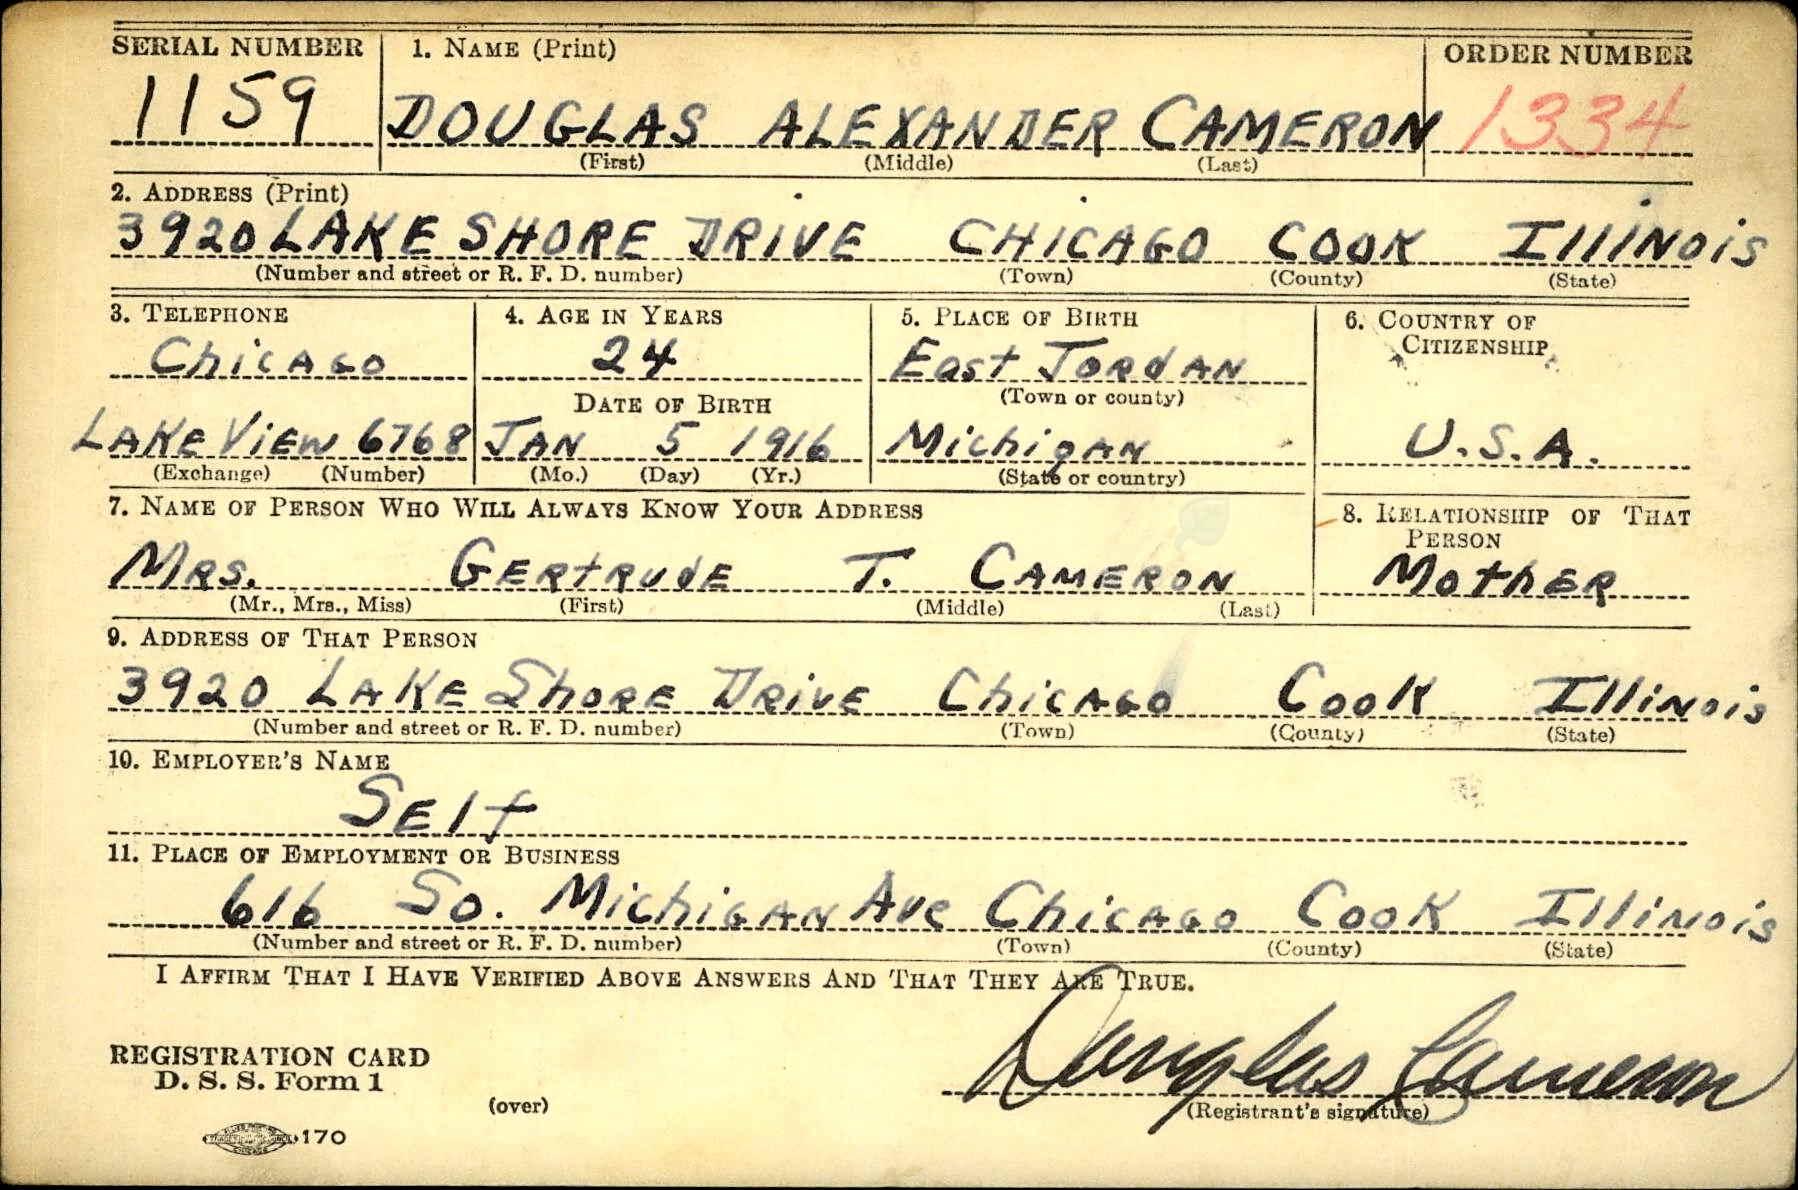 SERIAL NUMBER 1. NAME (Print) ORDER NUMBER
1159 DOUGLAS ALEXANDER CAMERON 1334
(First) (Middle) (Last)
2. ADDRESS (Print)
3920 LAKE SHORE DRIVE CHICAGO COOK ILLINOIS
(Number and street or R. F. D. number) (Town) (County) (State)
3. TELEPHONE 4. AGE IN YEARS 5. PLACE OF BIRTH 6. COUNTRY OF
CITIZENSHIP
Chicago 24 East Jordan
(Town or county)
DATE OF BIRTH
Lake View 6768 Jan 5 1916 Michigan U.S.A.
(Exchange) (Number) (Mo.) (Day) (Yr.) (State or country)
7. NAME OF PERSON WHO WILL ALWAYS KNOW YOUR ADDRESS 8. RELATIONSHIP OF THAT
PERSON
Mrs. Gertrude T. Cameron Mother
(Mr., Mrs., Miss) (First) (Middle) (Last)
9. ADDRESS OF THAT PERSON
3920 Lake Shore Drive Chicago Cook Illinois
(Number and street or R. F. D. number) (Town) (County) (State)
10. EMPLOYER'S NAME
Self
11. PLACE OF EMPLOYMENT OR BUSINESS
616 So. Michigan Ave Chicago Cook Illinois
(Number and street or R. F. D. number) (Town) (County) (State)
I AFFIRM THAT I HAVE VERIFIED ABOVE ANSWERS AND THAT THEY ARE TRUE.
Douglas Cameron
(Registrant's signature)
REGISTRATION CARD
D. S. S. Form 1
(over)
170